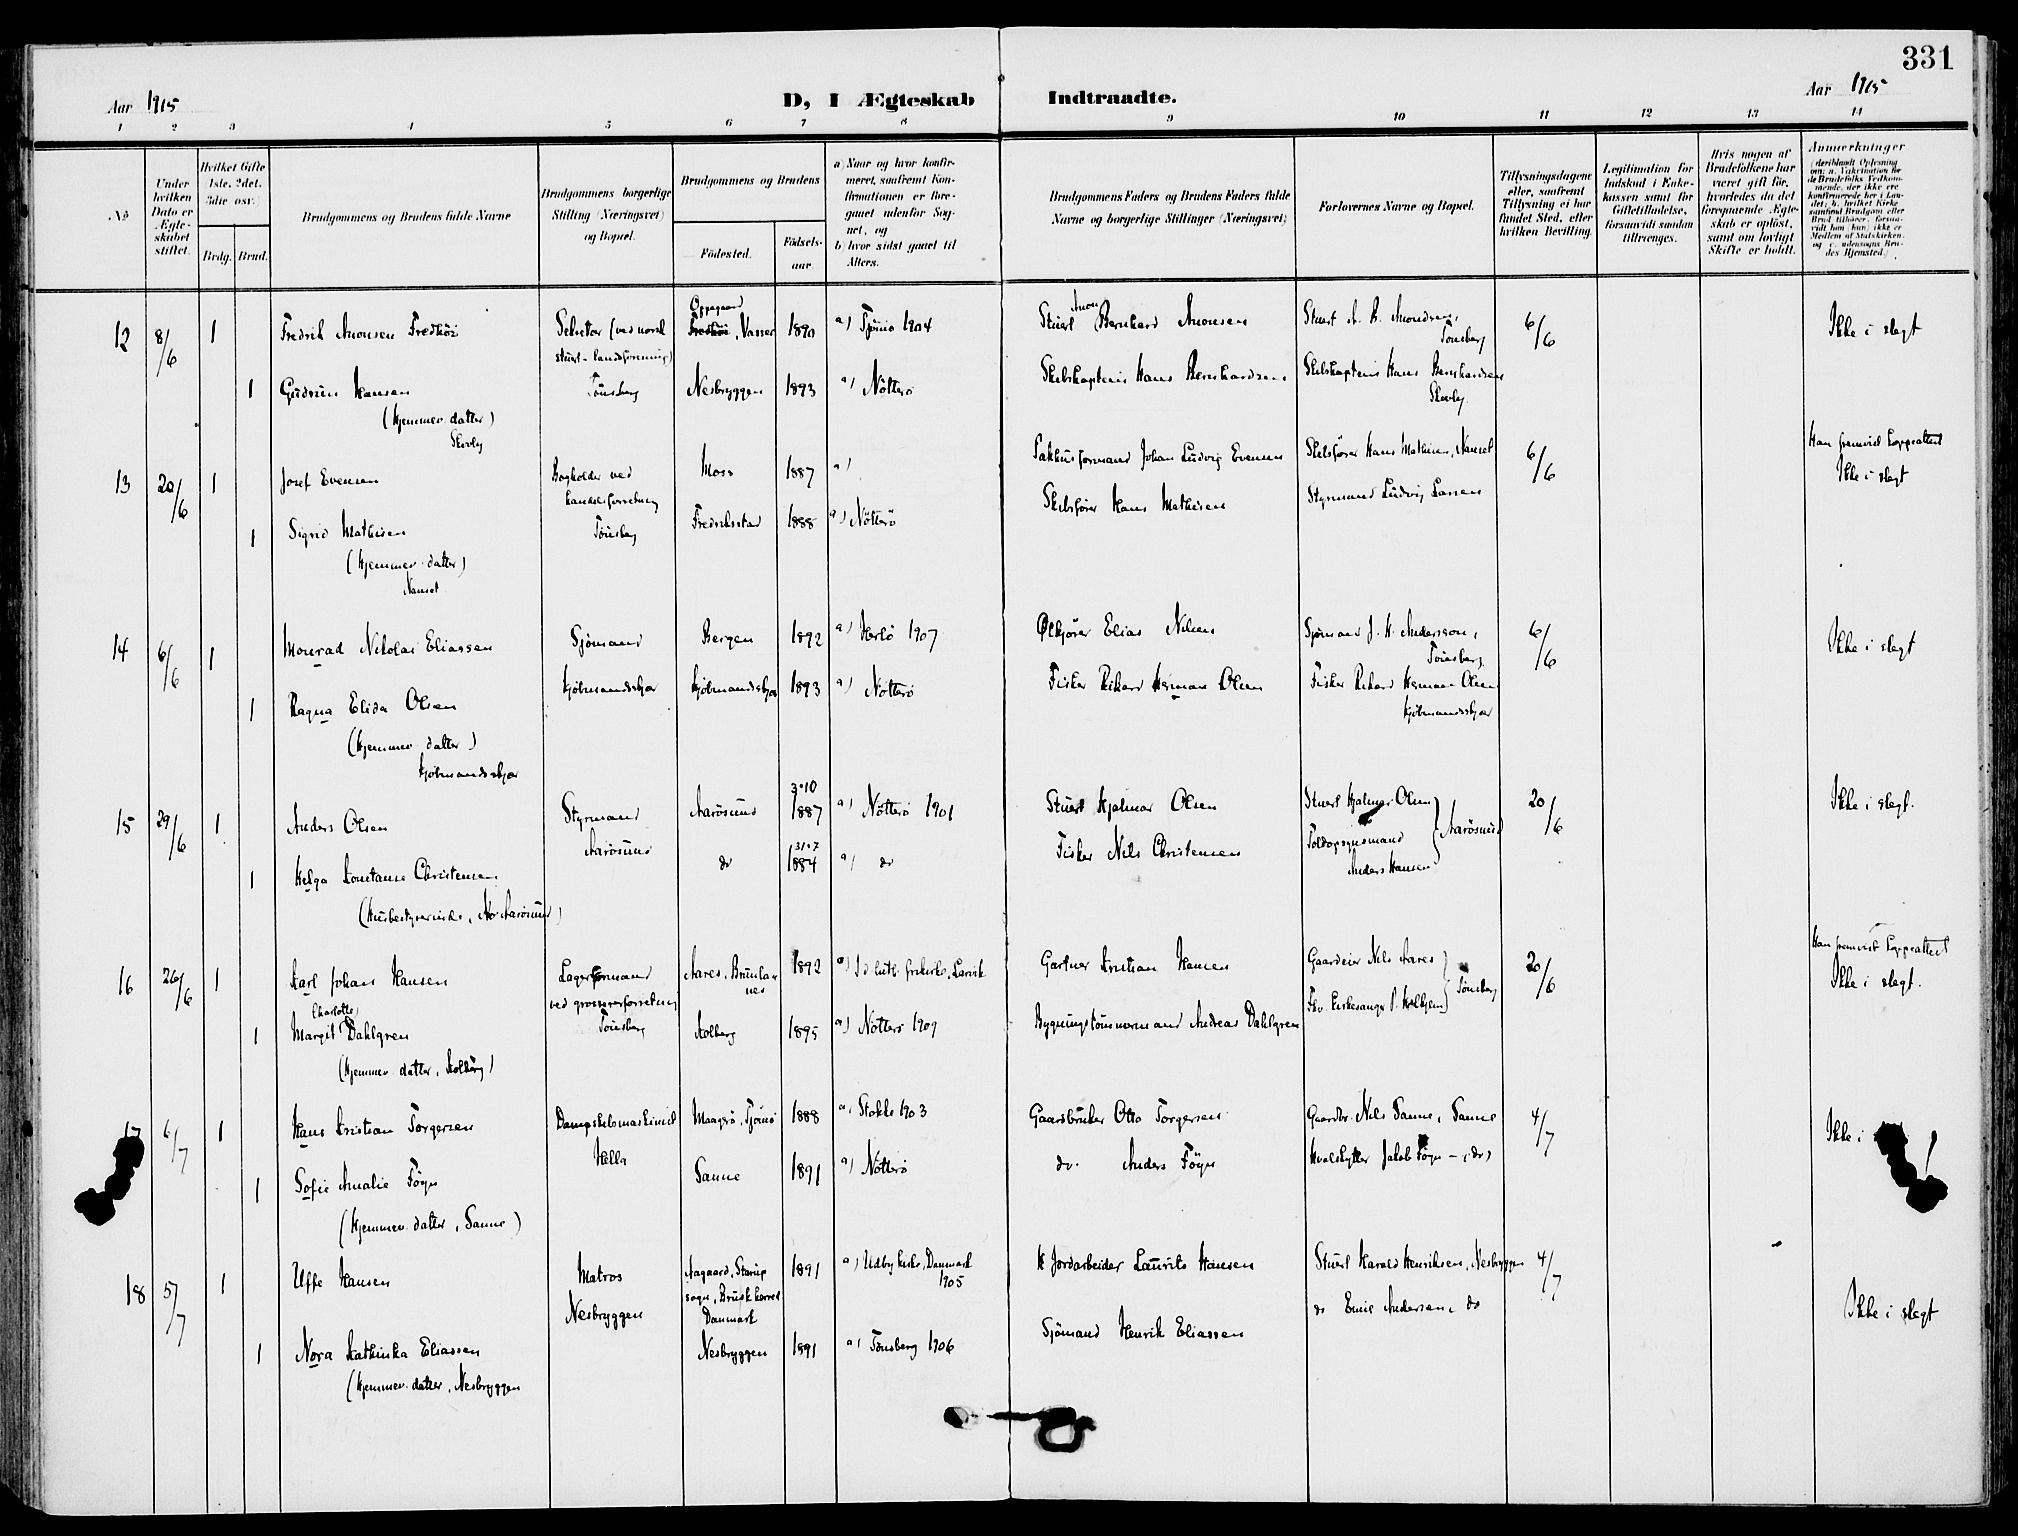 331
Aar 1915
D, I Ægteskab Indtraadte.
Aar 1915
1 2 3 4 5 6 7 8 9 10 11 12 13 14
No
Under hvilken Dato er Ægteskabet stiftet.
Hvilket Gifte 1ste. 2det. 3die osv.
Brdg. Brud.
Brudgommens og Brudens fulde Navne
Brudgommens borgerlige Stilling (Næringsvei) og Bopæl.
Brudgommens og Brudens
Fødested.
Fødselsaar.
a) Naar og hvor konfirmeret, saafremt Konfirmationen er foregaaet udenfor Sognet, og
b) hvor sidst gaaet til Alters.
Brudgommens Faders og Brudens Faders fulde Navne og borgerlige Stillinger (Næringsvei)
Forlovernes Navne og Bopæl.
Tillysningsdagene eller, saafremt Tillysning ei har fundet Sted, efter hvilken Bevilling.
Legitimation for Indskud i Enkekassen samt for Giftetilladelse, forsaavidt saadan tiltrænges.
Hvis nogen af Brudefolkene har været gift før, hvorledes da det foregaaende Ægteskab er opløst, samt om lovligt Skifte er holdt.
Anmerkninger
12 8/6 1 Fredrik Amonsen Fredhöi
Sekretær (ved norsk stuert-landsforening) Tönsberg
Oppegaard, Vasser 1890 a) Tjömö 1904
Stuert Amon Bernhard Amonsen
Stuert A. B. Amondsen, Tönsberg
6/6
Ikke i slegt
1 Gudrun Hansen
(Hjemmev. datter) Skovly
Nesbryggen 1893 a) Nötterö
Skibskaptein Hans Bernhardsen
Skibskaptein Hans Bernhardsen Skovly
13 20/6 1 Josef Evensen
Bogholder ved handelsforretning Tönsberg
Moss 1887 a)
Pakhusformand Johan Ludvig Evensen
Skibsfører Hans Mathisen, Nanset
6/6
Han fremvist Koppeattest
Ikke i slegt
1 Sigrid Mathisen
(Hjemmev. datter) Nanset
Fredriksstad 1888 a) Nötterö
Skibsfører Hans Mathisen
Styrmand Ludvig Larsen
14 6/6 1 Monrad Nikolai Eliassen
Sjömand Kjöbmandskjær
Bergen 1892 a) Herlö 1907
Ølkjører Elias Nilsen
Sjömand J. H. Andersson, Tönsberg
6/6
Ikke i slegt
1 Ragna Elida Olsen
(Hjemmev. datter) Kjöbmandskjær
Kjöbmandskjær 1893 a) Nötterö
Fisker Rikard Herman Olsen
Fisker Rikard Herman Olsen Kjöbmandskjær
15 29/6 1 Anders Olsen
Styrmand Aarösund
Aarösund 3-10 1887 a) Nötterö 1901
Stuert Hjalmar Olsen
Stuert Hjalmar Olsen
Toldopsynsmand Anders Hansen } Aarösund
20/6
Ikke i slegt.
1 Helga Konstanse Christensen
(Husbestyrerinde, Aarösund)
do 31-7 1884 a) do
Fisker Nils Christensen
16 26/6 1 Karl Johan Hansen
Lagerformand ved grossererforretning Tönsberg
Aares, Brunlanes 1892 a) I d. luth. frikirke, Larvik
Gartner Kristian Hansen
Gaardeier Nils Aares
Fhv kirkesanger P. Holhjem } Tönsberg
20/6
Han fremvist Koppeattest
Ikke i slegt.
1 Charlotte Margit Dahlgren
(Hjemmev. datter, Kolberg)
Kolberg 1895 a) Nötterö 1909
Bygningstömmermand Andreas Dahlgren
17 6/7 1 Hans Kristian Torgersen
Dampskibsmaskinist Hella
Maagerö, Tjömö 1888 a) Stokke 1903
Gaardbruker Otto Torgersen
Gaardbr. Nils Sanne, Sanne
4/7
Ikke i
1 Sofie Amalie Föyn
(Hjemmev. datter, Sanne)
Sanne 1891 a) Nötterö
do. Anders Föyn
Hvalskytter Jakob Föyn - (do)
18 5/7 1 Uffe Hansen
Matros Nesbryggen
Aagaard, Starup sogn, Brusk herred Danmark 1891 a) Udby kirke, Danmark 1905
Jordarbeider Laurits Hansen
Stuert Harald Henriksen, Nesbryggen
4/7
Ikke i slegt
1 Nora Kathinka Eliassen
(Hjemmev. datter, Nesbryggen
Nesbryggen 1891 a) Tönsberg 1906
Sjömand Henrik Eliassen
do Emil Andersen, do